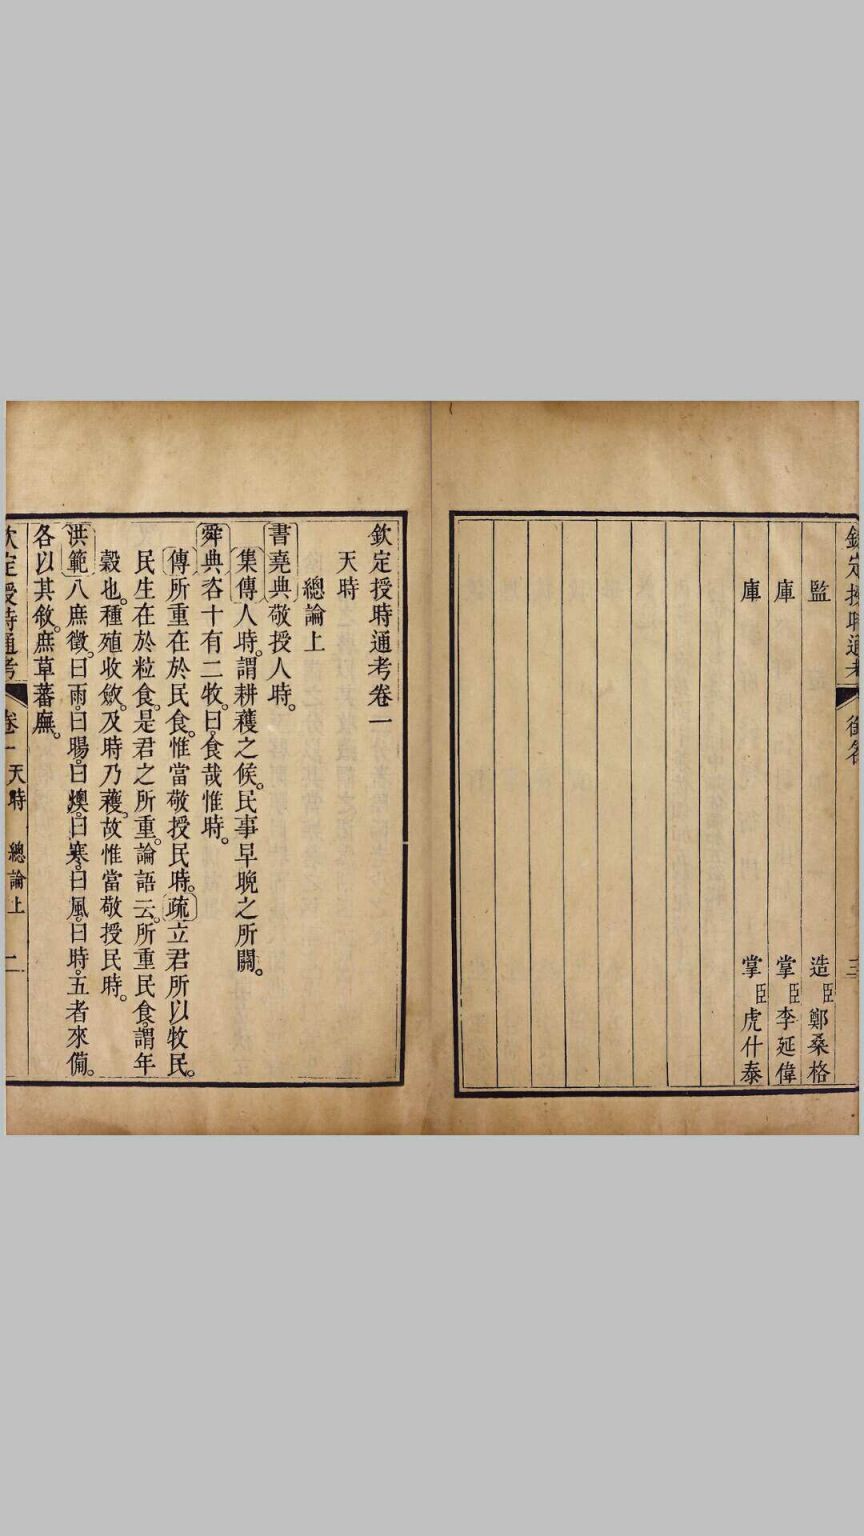 欽定授時通考 銜名 三
監造臣鄭桑格
庫掌臣李延偉
庫掌臣虎什泰
欽定授時通考卷一
天時
總論上
書堯典敬授人時。
集傳人時。謂耕穫之候。民事早晚之所關。
舜典咨十有二牧。曰。食哉惟時。
傳所重在於民食。惟當敬授民時。疏立君所以牧民。
民生在於粒食。是君之所重。論語云。所重民食。謂年
穀也。種殖收斂。及時乃穫。故惟當敬授民時。
洪範八庶徵。曰雨。曰暘。曰燠。曰寒。曰風。曰時。五者來備。
各以其敘。庶草蕃廡。
欽定授時通考 卷一 天時 總論上 一